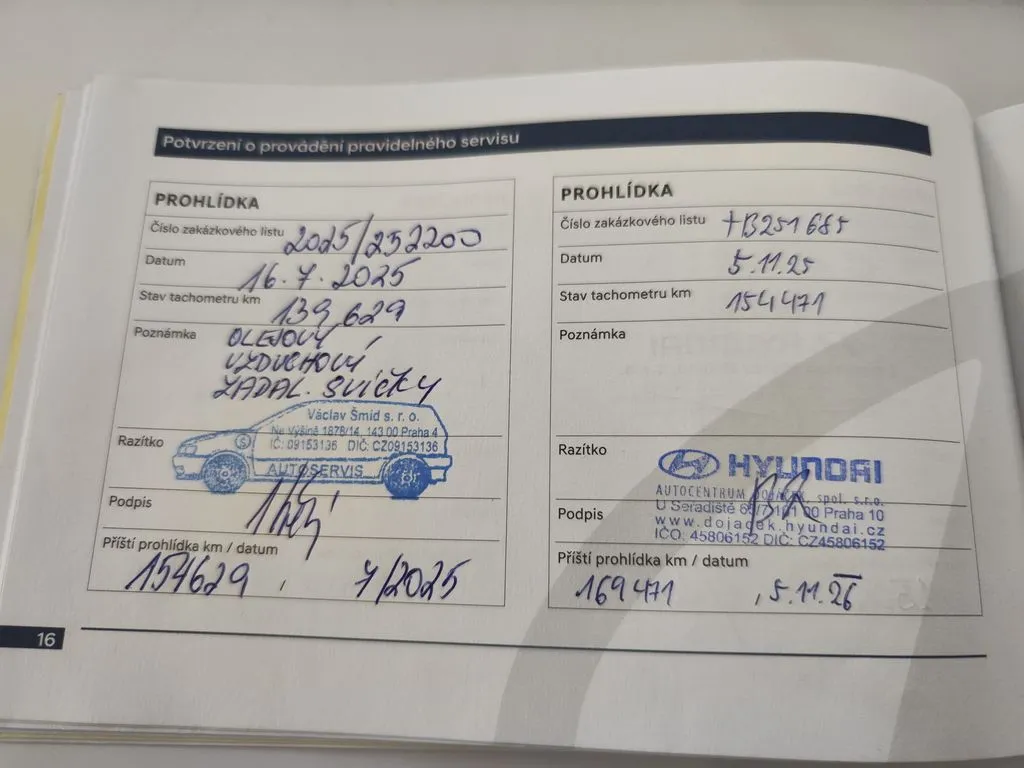 Potvrzení o provádění pravidelného servisu
PROHLÍDKA
Číslo zakázkového listu 2025/252200
Datum 16.7.2025
Stav tachometru km 139629
Poznámka OLEJOVÝ,
VZDUCHOVÝ
ZAPAL. SVÍČKY
Razítko
Václav Šmíd s. r. o.
Na Výšině 1878/14, 143 00 Praha 4
IČ: 09153136 DIČ: CZ09153136
AUTOSERVIS
Podpis
Příští prohlídka km / datum
154629, 7/2025
PROHLÍDKA
Číslo zakázkového listu HB251685
Datum 5.11.25
Stav tachometru km 154471
Poznámka
Razítko
HYUNDAI
AUTOCENTRUM spol. s.r.o.
U Seřadiště 00 Praha 10
www.dojacek.hyundai.cz
Podpis
IČO: 45806152 DIČ: CZ45806152
Příští prohlídka km / datum
169471, 5.11.26
16